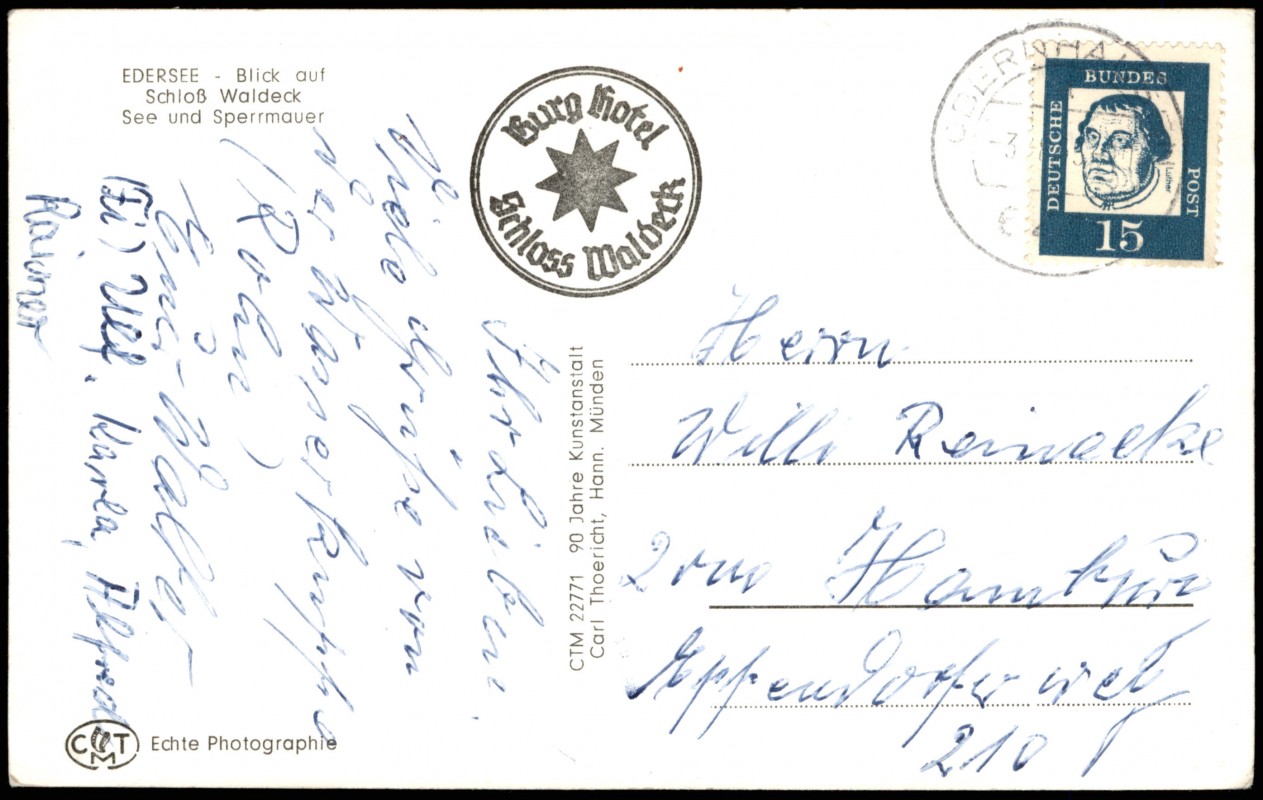 EDERSEE - Blick auf
Schloß Waldeck
See und Sperrmauer
Burg Hotel
Schloss Waldeck
DEUTSCHE
BUNDES
POST
Luther
15
Ihr Lieben!
viele Grüße von
der Wasserkuppe
(Rhön)
Walter
Ulli, Karla, Alfred
Rainer
CTM 22771 90 Jahre Kunstanstalt
Carl Thoericht, Hann. Münden
Herrn
Willi Reinecke
Hamburg
Eppendorfer weg
210
CTM Echte Photographie